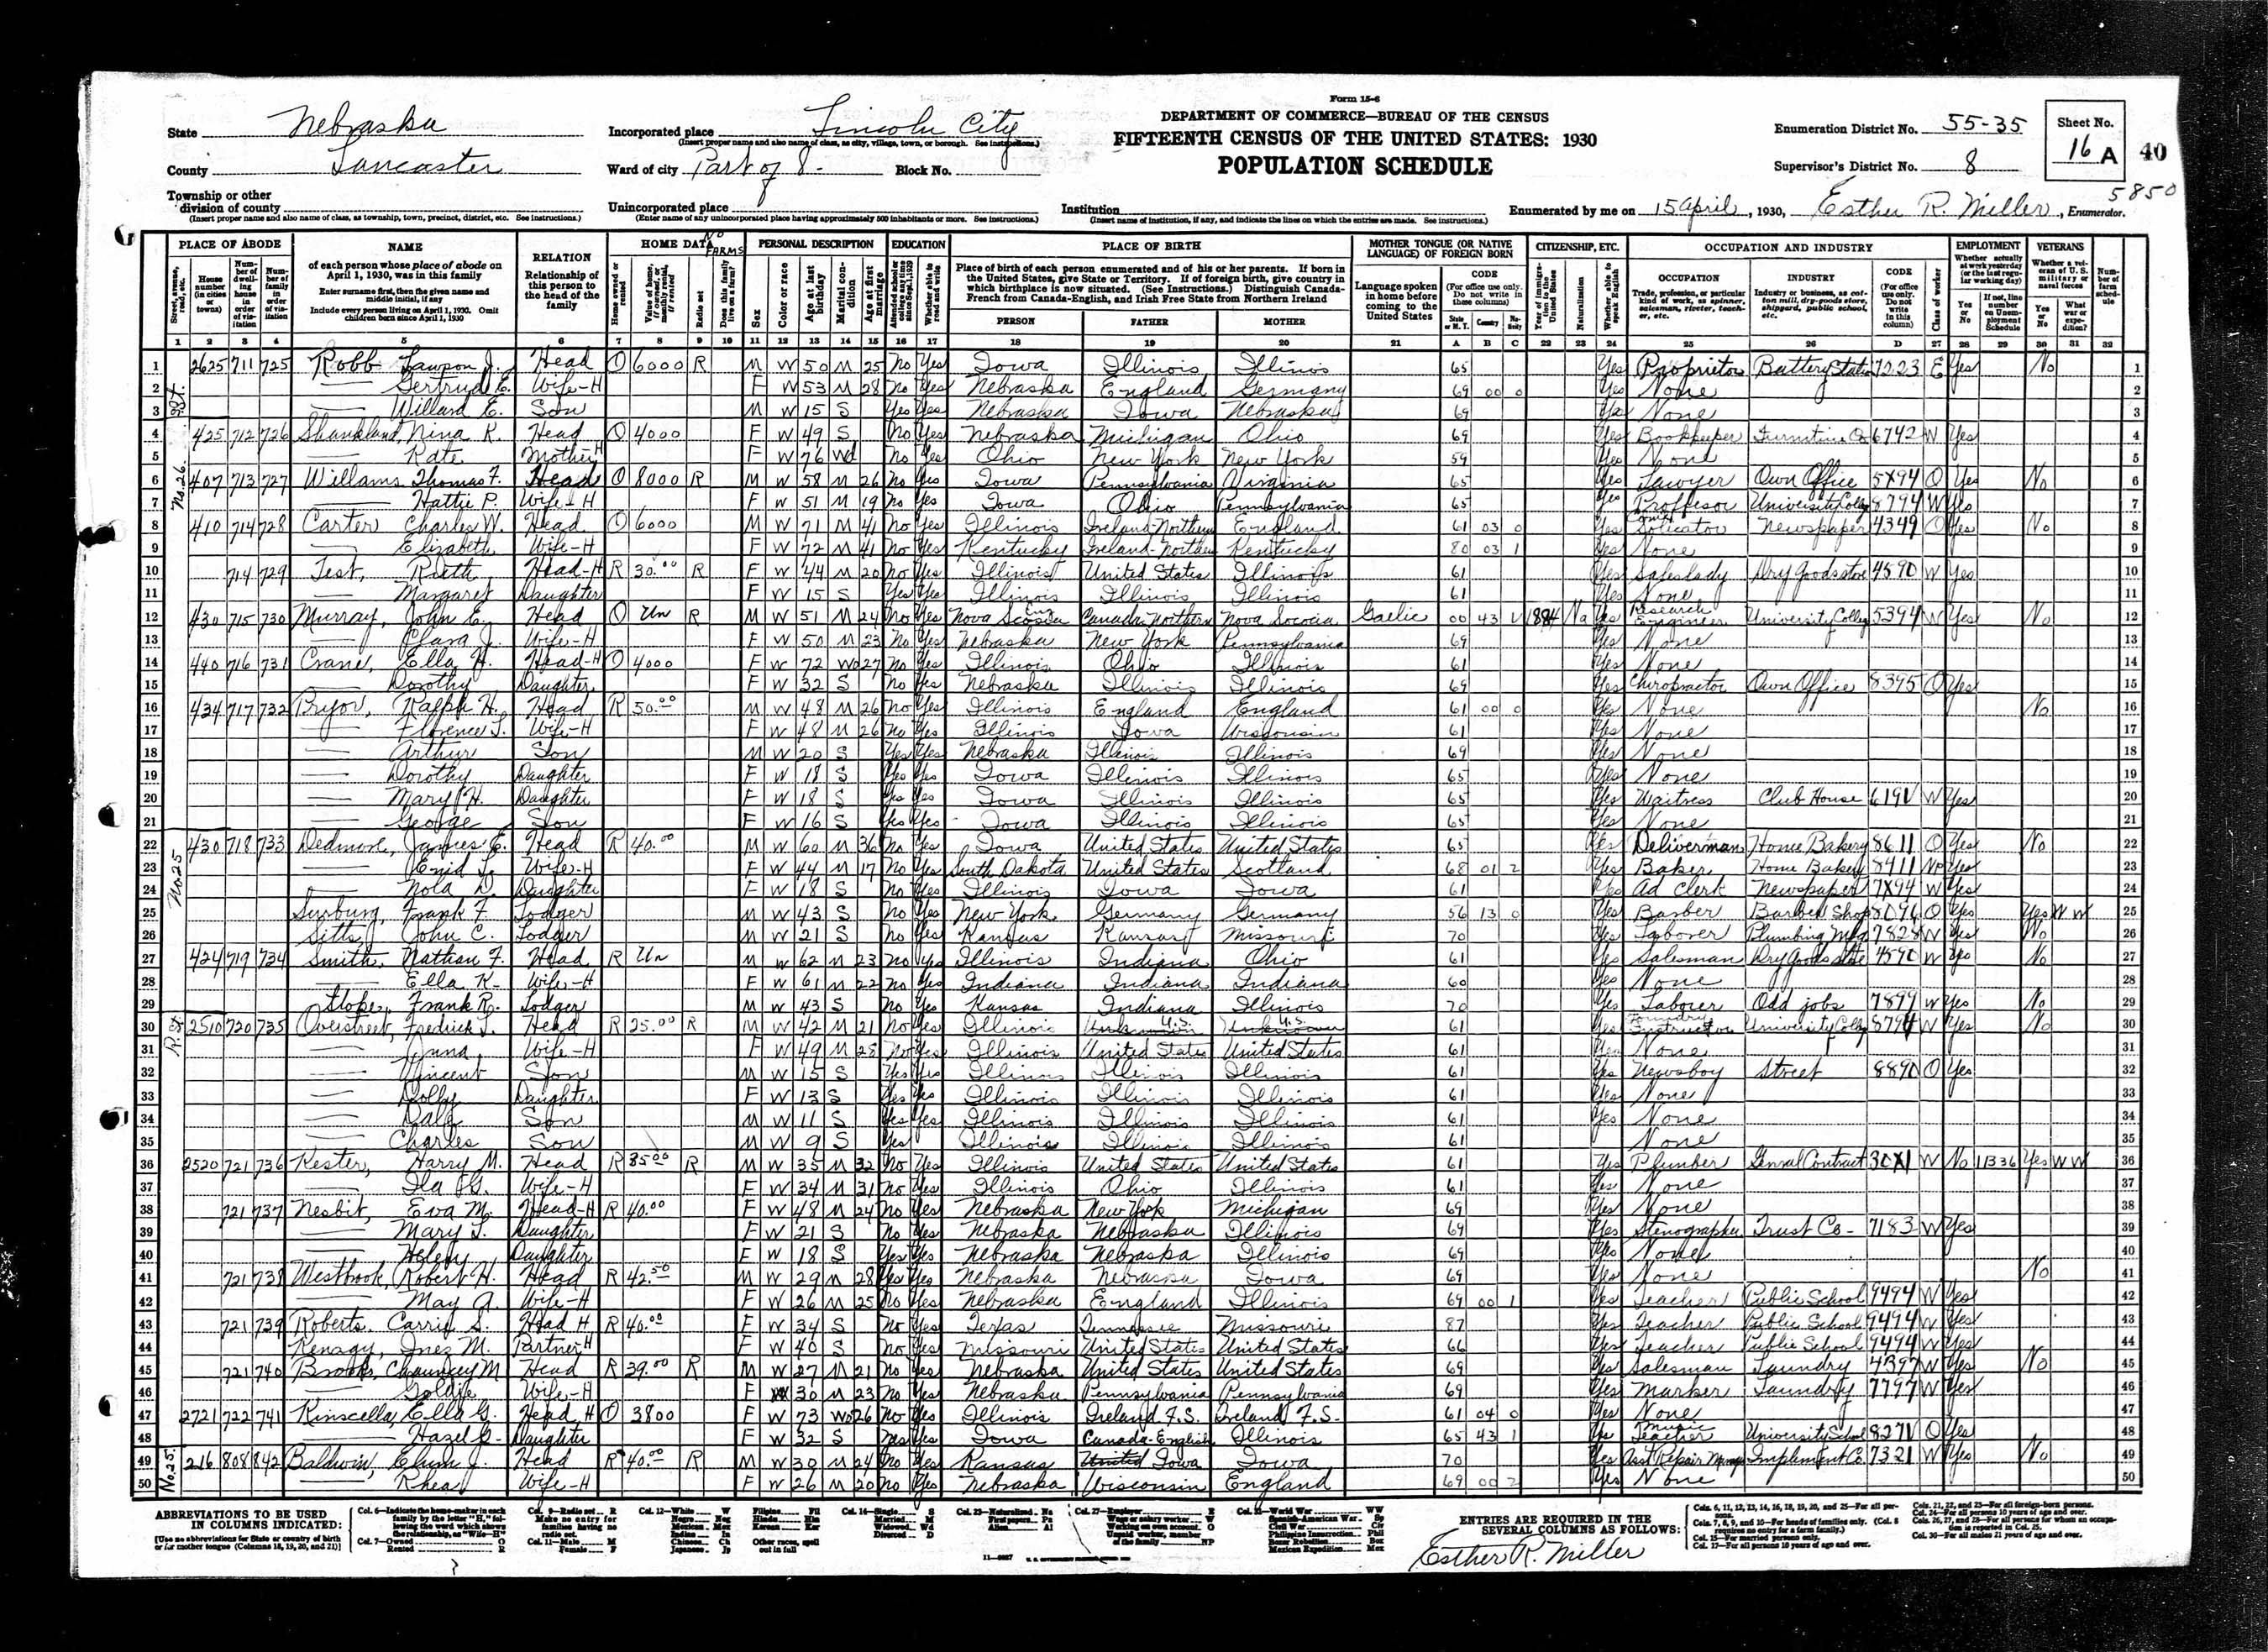 Form 15-6
State Nebraska
Incorporated place Lincoln City
(Insert proper name and also name of class, as city, village, town, or borough. See instructions.)
DEPARTMENT OF COMMERCE—BUREAU OF THE CENSUS
FIFTEENTH CENSUS OF THE UNITED STATES: 1930
POPULATION SCHEDULE
Enumeration District No. 55-35
Sheet No. 16 A 40
County Lancaster
Ward of city Part of 8- Block No.
Supervisor's District No. 8
5850
Township or other division of county
(Insert proper name and also name of class, as township, town, precinct, district, etc. See instructions.)
Unincorporated place
(Enter name of any unincorporated place having approximately 500 inhabitants or more. See instructions.)
Institution
(Insert name of institution, if any, and indicate the lines on which the entries are made. See instructions.)
Enumerated by me on 15 April, 1930, Esther R. Miller, Enumerator.
PLACE OF ABODE NAME RELATION HOME DATA NO FARMS PERSONAL DESCRIPTION EDUCATION PLACE OF BIRTH MOTHER TONGUE (OR NATIVE LANGUAGE) OF FOREIGN BORN CITIZENSHIP, ETC. OCCUPATION AND INDUSTRY EMPLOYMENT VETERANS
1 2 3 4 5 6 7 8 9 10 11 12 13 14 15 16 17 18 19 20 21 A B C 22 23 24 25 26 D 27 28 29 30 31 32
1 2625 711 725 Robb Lawson J. Head O 6000 R M W 50 M 25 No Yes Iowa Illinois Illinois 65 Yes Proprietor Battery Station 7223 E Yes No 1
2 Gertrude E. Wife-H F W 53 M 28 No Yes Nebraska England Germany 69 00 0 Yes None 2
3 Willard E. Son M W 15 S Yes Yes Nebraska Iowa Nebraska 69 Yes None 3
4 425 712 726 Shankland, Nina K. Head O 4000 F W 49 S No Yes Nebraska Michigan Ohio 69 Yes Bookkeeper Furniture Co 6742 W Yes 4
5 Kate Mother H F W 76 Wd No Yes Ohio New York New York 59 Yes None 5
6 407 713 727 Willams Thomas F. Head O 8000 R M W 58 M 26 No Yes Iowa Pennsylvania Virginia 65 Yes Lawyer Own Office 5X94 O Yes No 6
7 Hattie P. Wife-H F W 51 M 19 No Yes Iowa Ohio Pennsylvania 65 Yes Proffesor University Colleg 8794 W Yes 7
8 410 714 728 Carter Charles W. Head O 6000 M W 71 M 41 No Yes Illinois Ireland-Northern England 61 03 0 Yes Solicator Newspaper 4349 O Yes No 8
9 Elizabeth Wife-H F W 72 M 41 No Yes Kentucky Ireland-Northern Kentucky 80 03 1 Yes None 9
10 714 729 Test, Ruth Head-H R 30.00 R F W 44 M 20 No Yes Illinois United States Illinois 61 Yes Saleslady Dry Goods store 4590 W Yes 10
11 Margaret Daughter F W 15 S Yes Yes Illinois Illinois Illinois 61 Yes None 11
12 430 715 730 Murray, John E. Head O Un R M W 51 M 24 No Yes Nova Scosia Eng Canada Northern Nova Socoia Gaelic 00 43 V 1884 Na Yes Research Engineer University Colleg 5394 W Yes No 12
13 Clara J. Wife-H F W 50 M 23 No Yes Nebraska New York Pennsylvania 69 Yes None 13
14 440 716 731 Crane, Ella H. Head-H O 4000 F W 72 Wd 27 No Yes Illinois Ohio Illinois 61 Yes None 14
15 Dorothy Daughter F W 32 S No Yes Nebraska Illinois Illinois 69 Yes Chiropractor Own Office 8395 O Yes 15
16 434 717 732 Pryor, Ralph H. Head R 50.00 M W 48 M 26 No Yes Illinois England England 61 00 0 Yes None No 16
17 Florence L. Wife-H F W 48 M 26 No Yes Illinois Iowa Wisconsin 61 Yes None 17
18 Arthur Son M W 20 S Yes Yes Nebraska Illinois Illinois 69 Yes None 18
19 Dorothy Daughter F W 18 S Yes Yes Iowa Illinois Illinois 65 Yes None 19
20 Mary H. Daughter F W 18 S Yes Yes Iowa Illinois Illinois 65 Yes Waitress Club House 619V W Yes 20
21 George Son F W 16 S Yes Yes Iowa Illinois Illinois 65 Yes None 21
22 430 718 733 Dedmore, James E. Head R 40.00 M W 60 M 36 No Yes Iowa United States United States 65 Yes Deliverman Home Bakery 8611 O Yes No 22
23 Enid L. Wife-H F W 44 M 17 No Yes South Dakota United States Scotland 68 01 2 Yes Baker Home Bakery 8411 NP Yes 23
24 Nola D. Daughter F W 18 S No Yes Illinois Iowa Iowa 61 Yes Ad Clerk Newspaper 7X94 W Yes 24
25 Surburg, Frank F. Lodger M W 43 S No Yes New York Germany Germany 56 13 0 Yes Barber Barber Shop 8096 O Yes Yes WW 25
26 Sitts, John C. Lodger M W 21 S No Yes Kansas Kansas Missouri 70 Yes Laborer Plumbing Mfg 7828 W Yes No 26
27 424 719 734 Smith, Nathan F. Head R Un M W 62 M 23 No Yes Illinois Indiana Ohio 61 Yes Salesman Dry Goods store 4590 W Yes No 27
28 Ella K. Wife-H F W 61 M 22 No Yes Indiana Indiana Indiana 60 Yes None 28
29 Frank R. Lodger M W 43 S No Yes Kansas Indiana Illinois 70 Yes Laborer Odd jobs 7899 W Yes No 29
30 2510 720 735 Overstreet, Fredrick J. Head R 25.00 R M W 42 M 21 No Yes Illinois U.S. U.S. 61 Yes Foundry Instructor University Colleg 8794 W Yes No 30
31 Anna Wife-H F W 49 M 28 No Yes Illinois United States United States 61 Yes None 31
32 Vincent Son M W 15 S Yes Yes Illinois Illinois Illinois 61 Yes Newsboy Street 8890 O Yes 32
33 Dolly Daughter F W 13 S Yes Yes Illinois Illinois Illinois 61 Yes None 33
34 Dale Son M W 11 S Yes Yes Illinois Illinois Illinois 61 Yes None 34
35 Charles Son M W 9 S Yes Illinois Illinois Illinois 61 None 35
36 2520 721 736 Kester, Harry M. Head R 35.00 R M W 35 M 32 No Yes Illinois United States United States 61 Yes Plumber Genral Contract 30X1 W No 11336 Yes WW 36
37 Ila G. Wife-H F W 34 M 31 No Yes Illinois Ohio Illinois 61 Yes None 37
38 721 737 Nesbit, Eva M. Head-H R 40.00 F W 48 M 24 No Yes Nebraska New York Michigan 69 Yes None 38
39 Mary L. Daughter F W 21 S No Yes Nebraska Nebraska Illinois 69 Yes Stenographer Trust Co- 7183 W Yes 39
40 Helen Daughter F W 18 S Yes Yes Nebraska Nebraska Illinois 69 Yes None 40
41 721 738 Westbrook, Robert H. Head R 42.50 M W 29 M 28 Yes Yes Nebraska Nebraska Iowa 69 Yes None No 41
42 May A. Wife-H F W 26 M 25 No Yes Nebraska England Illinois 69 00 1 Yes Teacher Public School 9494 W Yes 42
43 721 739 Roberts, Carrie S. Head H R 40.00 F W 34 S No Yes Texas Tennessee Missouri 87 Yes Teacher Public School 9494 W Yes 43
44 Kenagy, Inez M. Partner H F W 40 S No Yes Missouri United States United States 66 Yes Teacher Public School 9494 W Yes 44
45 721 740 Brooks, Chauncey M. Head R 39.00 R M W 27 M 21 No Yes Nebraska United States United States 69 Yes Salesman Laundry 4397 W Yes No 45
46 Goldie Wife-H F W 30 M 23 No Yes Nebraska Pennsylvania Pennsylvania 69 Yes Marker Laundry 7797 W Yes 46
47 2721 722 741 Kinscella, Ella G. Head H O 3800 F W 73 Wd 26 No Yes Illinois Ireland F.S. Ireland F.S. 61 04 0 Yes None 47
48 Hazel G. Daughter F W 32 S Yes Yes Iowa Canada-English Illinois 65 43 1 Yes Music Teacher University School 827V O Yes 48
49 216 808 842 Baldwin, J. Head R 40.00 R M W 30 M 24 No Yes Kansas United Iowa Iowa 70 Yes Asst Repair Implement Co. 7321 W Yes No 49
50 Rhea Wife-H F W 26 M 20 No Yes Nebraska Wisconsin England 69 00 2 Yes None 50
ABBREVIATIONS TO BE USED IN COLUMNS INDICATED:
[Use no abbreviations for State or country of birth or for mother tongue (Columns 18, 19, 20, and 21)]
ENTRIES ARE REQUIRED IN THE SEVERAL COLUMNS AS FOLLOWS:
Esther R. Miller